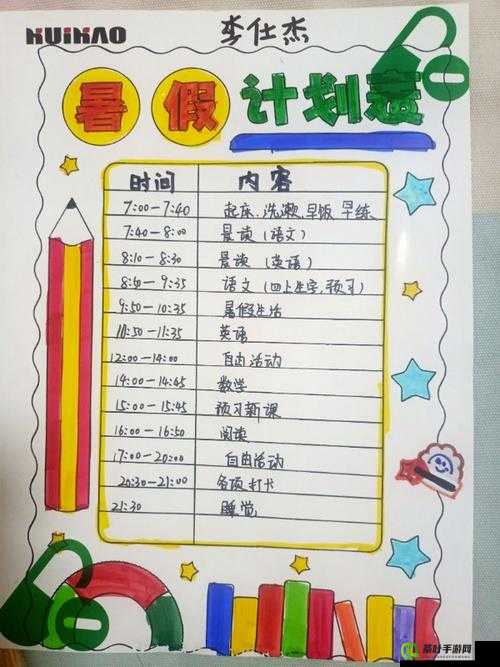 HUIHAO 李仕杰
暑假计划表
时间 内容
7:00-7:40 起床.洗漱.早饭 早练
7:40-8:00 晨读(语文)
8:10-8:30 晨读(英语)
8:50-9:35 语文(四上生字,预习)
9:50-10:35 暑假生活
10:50-11:35 英语
12:00-14:00 自由活动
14:00-14:45 数学
15:00-15:45 预习新课
16:00-16:50 阅读
17:00-20:00 自由活动
20:30-21:00 各项打卡
21:30 睡觉
茶叶手游网